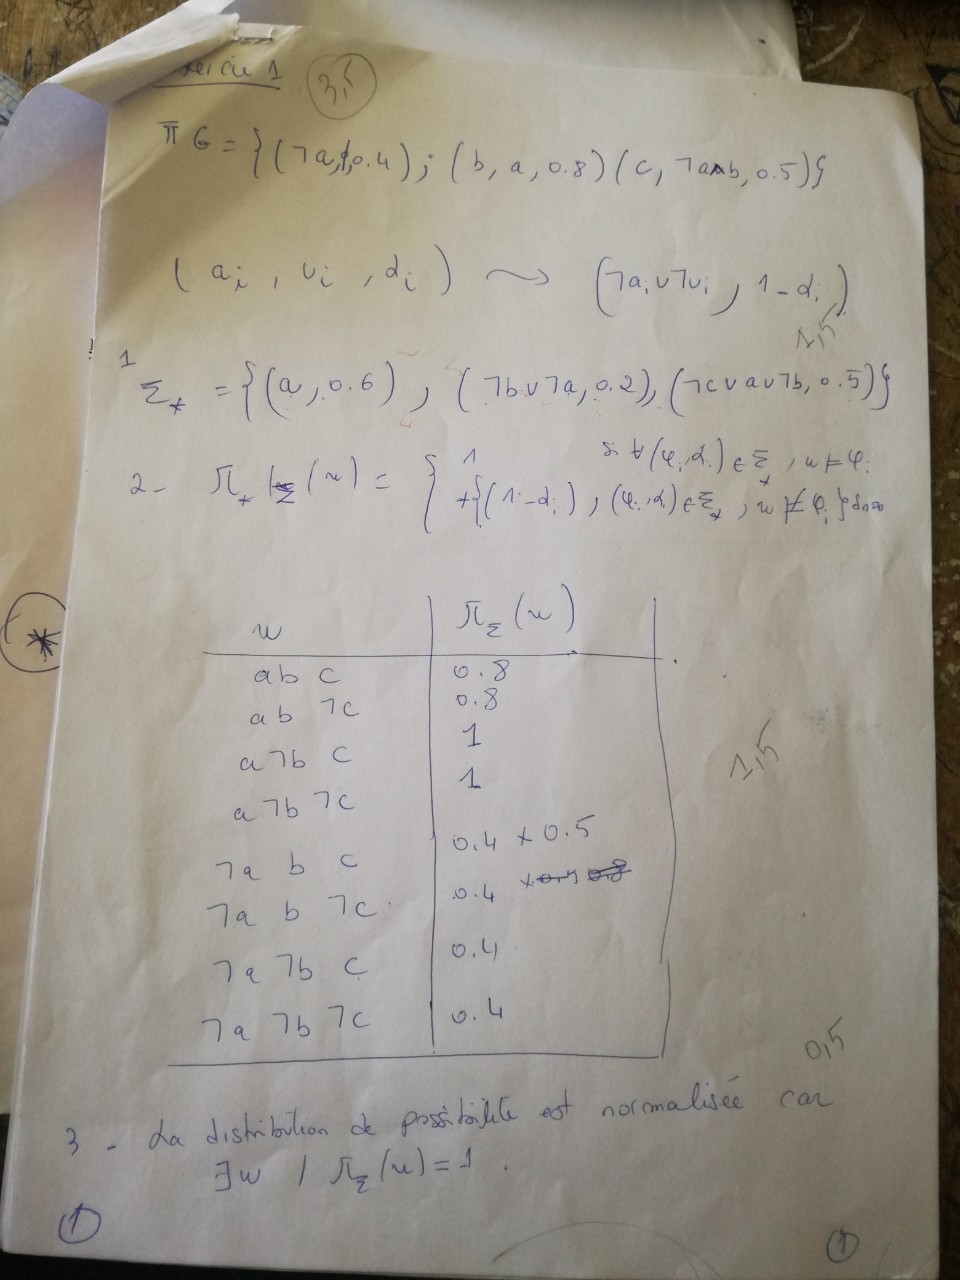 Exercice 1 3,5
ΠG = {(¬a, 0.4) ; (b, a, 0.8) (c, ¬a∧b, 0.5)}
(ai, ui, αi) ⤳ (¬ai ∨ ¬ui, 1-αi)
1,5
1 Σ* = {(a, 0.6), (¬b∨¬a, 0.2), (¬c∨a∨¬b, 0.5)}
2- π*Σ(w) = { 1 si ∀(φi, αi) ∈ Σ*, w ⊨ φi
*{(1-αi), (φi, αi) ∈ Σ*, w ⊭ φi} sinon
*
w πΣ(w)
a b c 0.8
a b ¬c 0.8
a ¬b c 1
a ¬b ¬c 1
1,5
¬a b c 0.4 × 0.5
¬a b ¬c 0.4
¬a ¬b c 0.4
¬a ¬b ¬c 0.4
0,5
3 - La distribution de possibilité est normalisée car
∃w / πΣ(w) = 1.
1 1